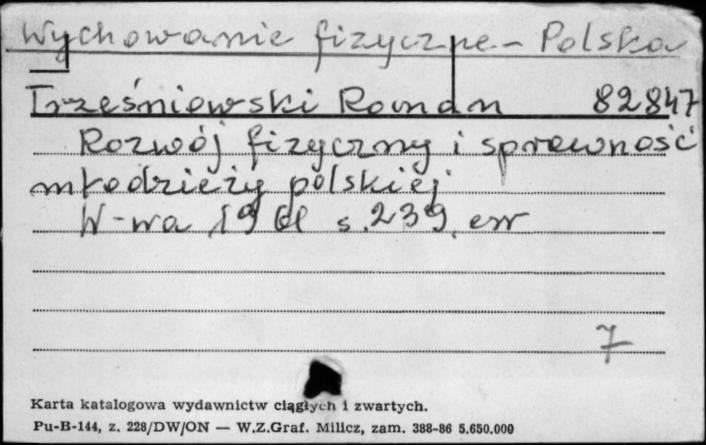 Wychowanie fizyczne - Polska
Trześniowski Roman 82847
Rozwój fizyczny i sprawność
młodzieży polskiej
W-wa 1961 s. 239.
7
Karta katalogowa wydawnictw ciągłych i zwartych.
Pu-B-144, z. 228/DW/ON — W.Z.Graf. Milicz, zam. 388-86 5.650.000